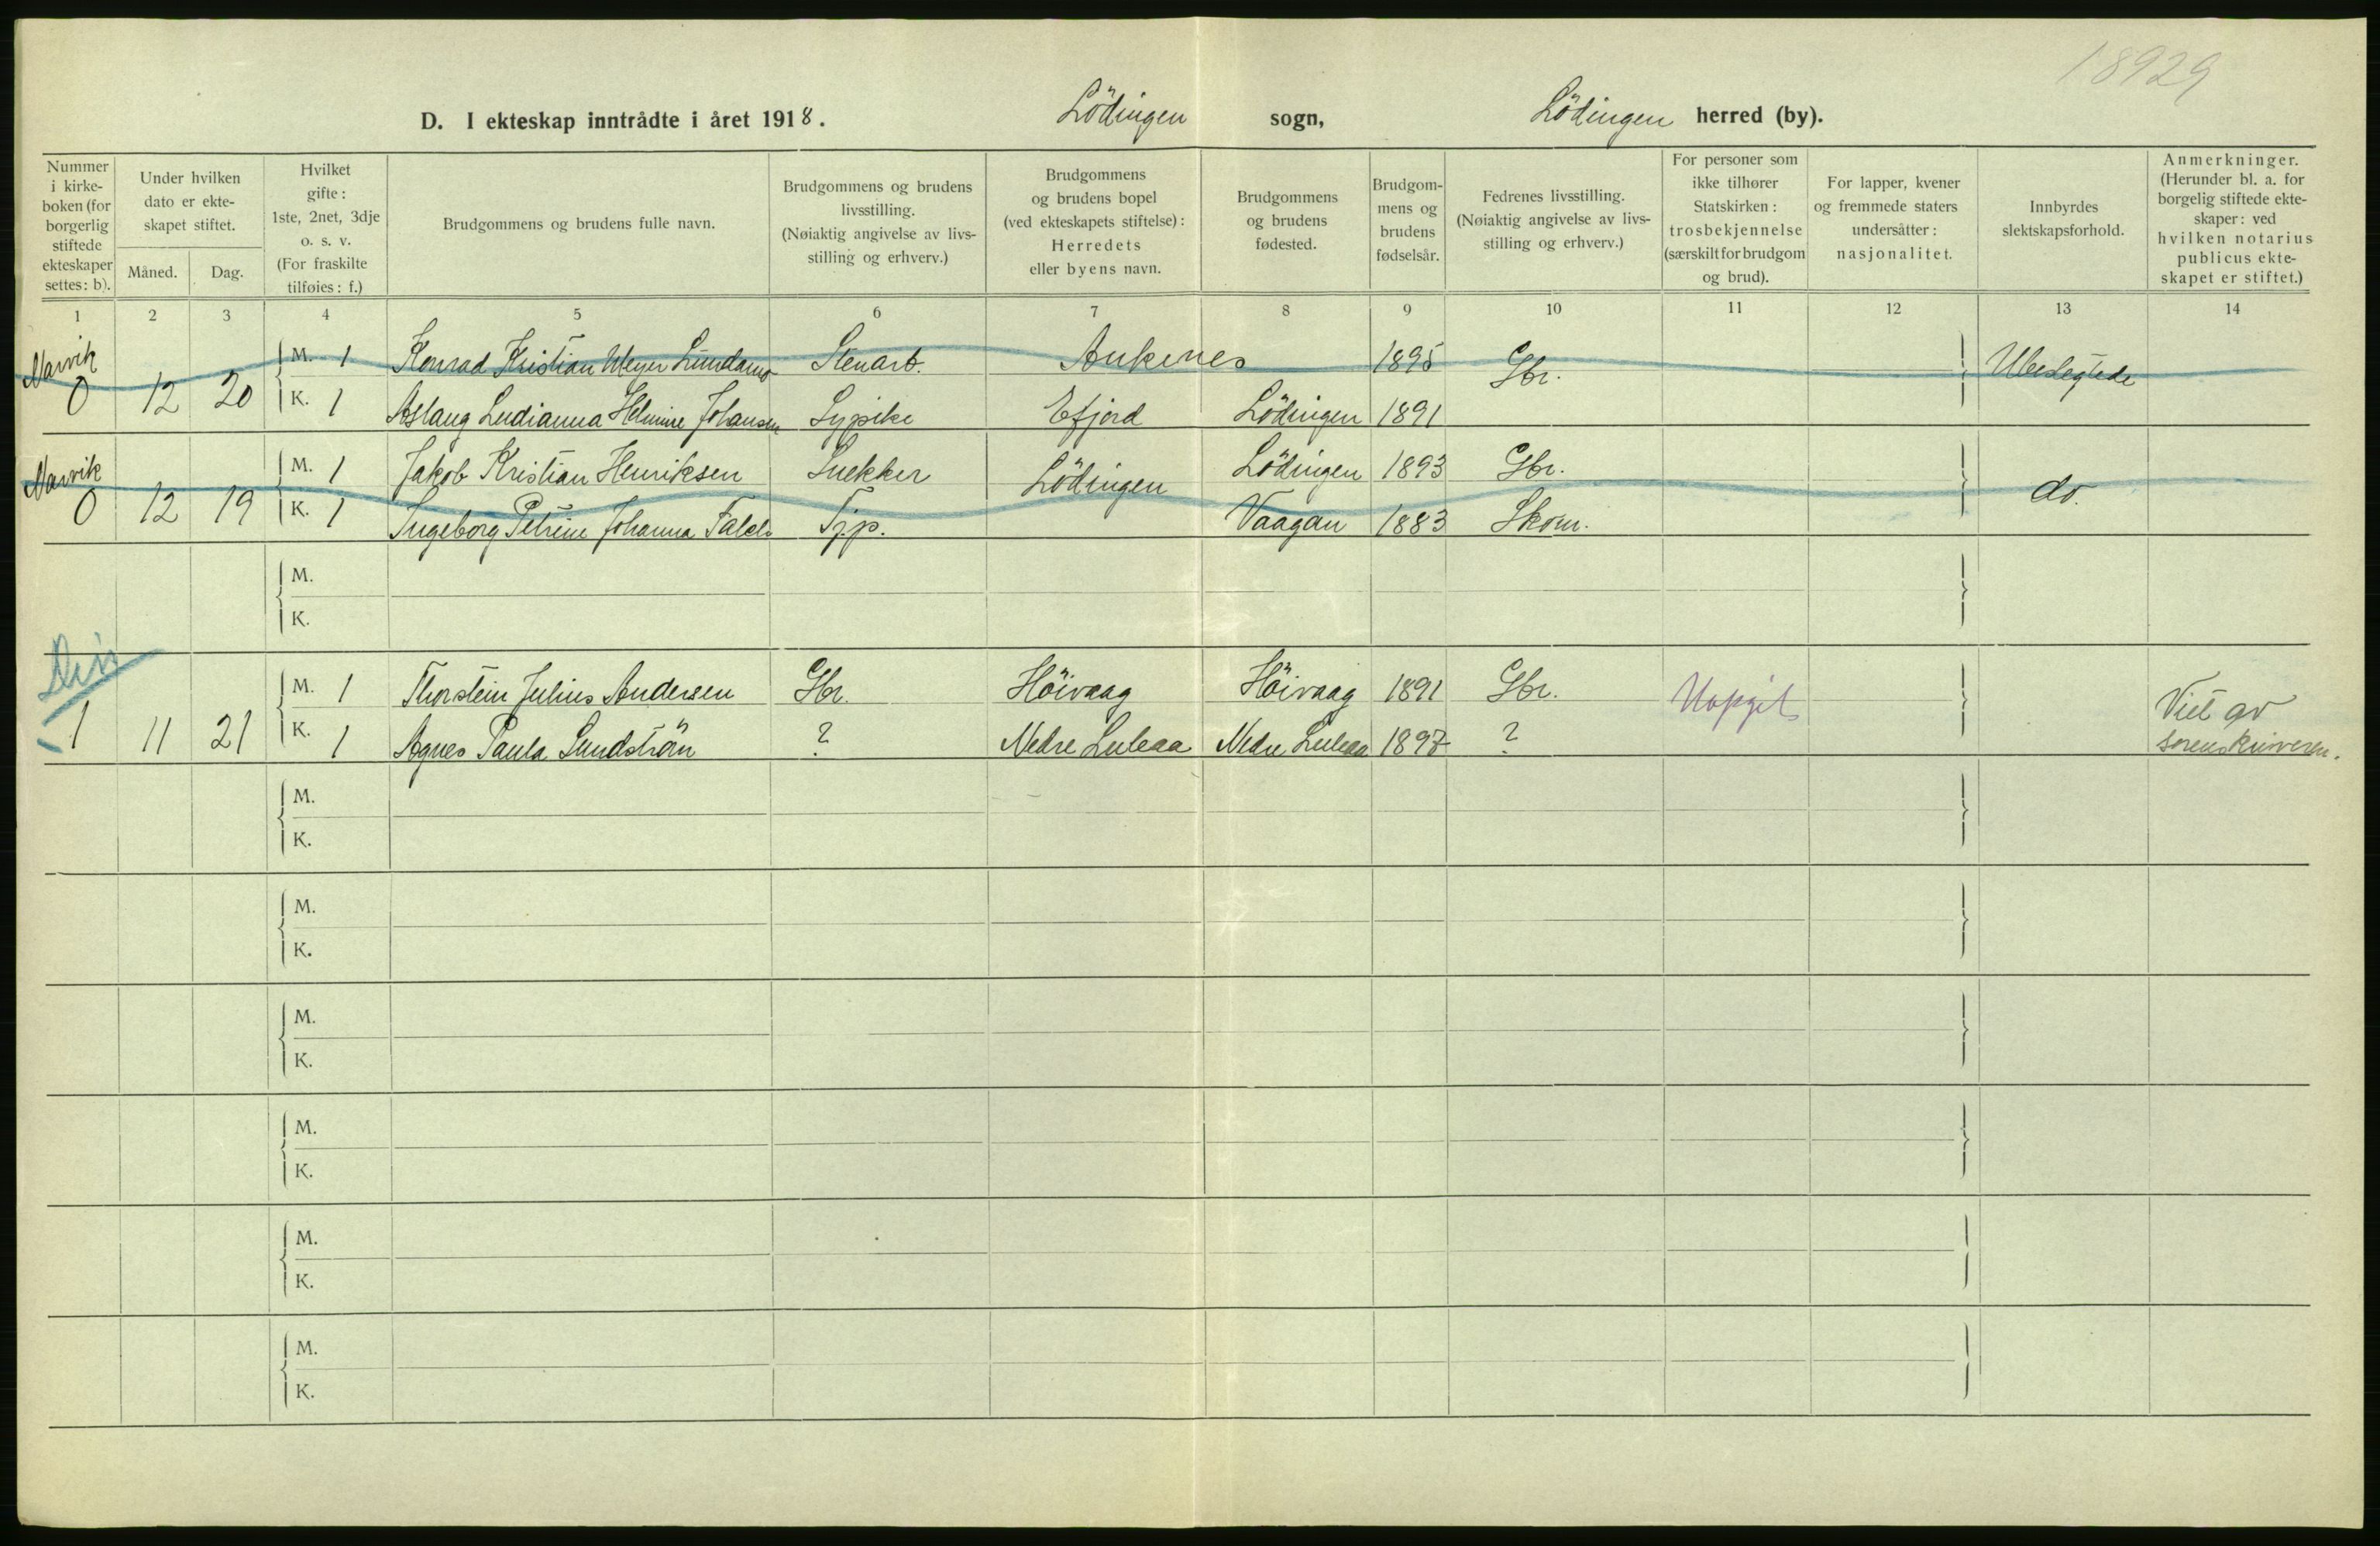 18929
D. I ekteskap inntrådte i året 1918. Lödingen sogn, Lödingen herred (by).
Nummer i kirke-boken (for borgerlig stiftede ekteskaper settes: b).
Under hvilken dato er ekte-skapet stiftet.
Måned. Dag.
Hvilket gifte: 1ste, 2net, 3dje o. s. v. (For fraskilte tilføies: f.)
Brudgommens og brudens fulle navn.
Brudgommens og brudens livsstilling. (Nøiaktig angivelse av livs-stilling og erhverv.)
Brudgommens og brudens bopel (ved ekteskapets stiftelse): Herredets eller byens navn.
Brudgommens og brudens fødested.
Brudgom-mens og brudens fødselsår.
Fedrenes livsstilling. (Nøiaktig angivelse av livs-stilling og erhverv.)
For personer som ikke tilhører Statskirken: trosbekjennelse (særskilt for brudgom og brud).
For lapper, kvener og fremmede staters undersåtter: nasjonalitet.
Innbyrdes slektskapsforhold.
Anmerkninger. (Herunder bl. a. for borgelig stiftede ekte-skaper: ved hvilken notarius publicus ekte-skapet er stiftet.)
1 2 3 4 5 6 7 8 9 10 11 12 13 14
Narvik M. 1 Konrad Kristian Meyer Lundamo Stenarb. Ankenes 1895 Gbr. Ubeslegtede
0 12 20 K. 1 Aslaug Ludianna Helmine Johansen Sypike Efjord Lödingen 1891
Narvik M. 1 Jakob Kristian Henriksen Snekker Lödingen Lödingen 1893 Gbr. do.
0 12 19 K. 1 Ingeborg Petrine Johanna Falch Tj.p. Vaagan 1883 Skom.
M.
K.
M. 1 Thorstein Julius Andersen Gbr. Höivaag Höivaag 1891 Gbr. Uopgit Viet av
1 11 21 K. 1 Agnes Paula Sundström ? Nedre Luleaa Nedre Luleaa 1897 ? sorenskriveren.
M.
K.
M.
K.
M.
K.
M.
K.
M.
K.
M.
K.